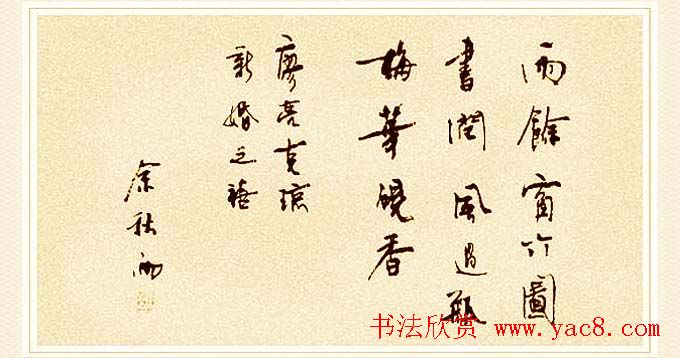 雨餘窗竹圖
書潤風過瓶
梅華硯香
廖亮克琼
新婚之禧
余秋雨
书法欣赏 www.yac8.com